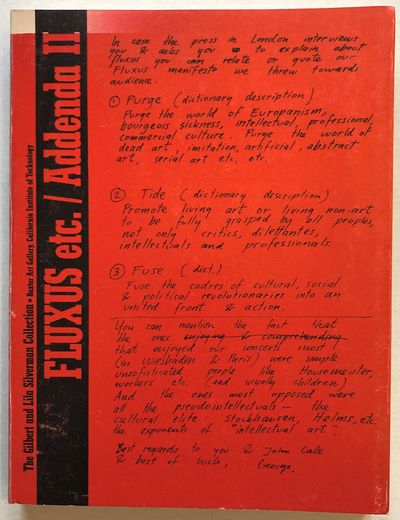 The Gilbert and Lila Silverman Collection • Baxter Art Gallery, California Institute of Technology
FLUXUS etc. / Addenda II
In case the press in London interviews
you & asks you to explain about
fluxus you can relate or quote our
Fluxus manifesto we threw towards
audience.
① Purge (dictionary description)
Purge the world of Europanism,
bourgeois sickness, intellectual, professional,
commercial culture. Purge the world of
dead art, imitation, artificial, abstract
art, serial art etc. etc.
② Tide (dictionary description)
Promote living art or living non-art
to be fully grasped by all peoples,
not only critics, diletantes,
intellectuals and professionals.
③ Fuse (dict.)
Fuse the cadres of cultural, social
& political revolutionaries into an
united front & action.
You can mention the fact that
the ones enjoying & comprehending
that enjoyed our concerts most!
(in Wiesbaden & Paris) were simple
unsofisticated people like Housemeister,
workers etc. (and usually children)
And the ones most opposed were
all the pseudointellectuals — the
cultural elite: Stockhausen, Helms, etc.
the exponents of "intellectual art".
Best regards to you & John Cale
& best of luck. George.